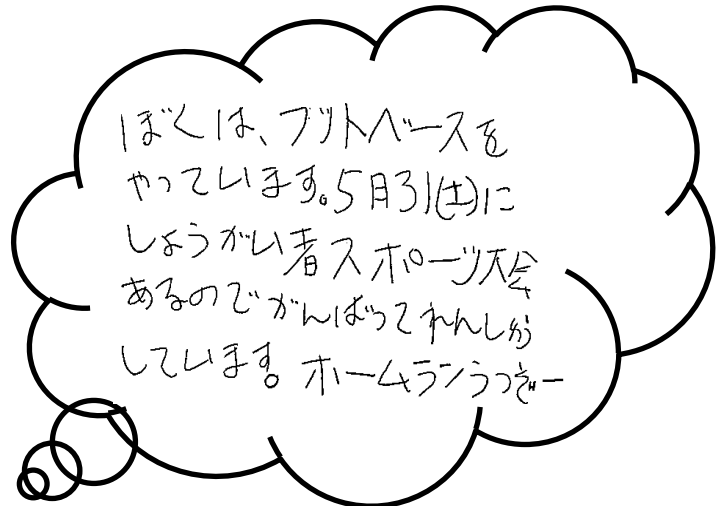 ぼくは、フットベースを
やっています。5月31(土)に
しょうがい者スポーツ大会
あるのでがんばってれんしゅう
しています。ホームランうつぞー